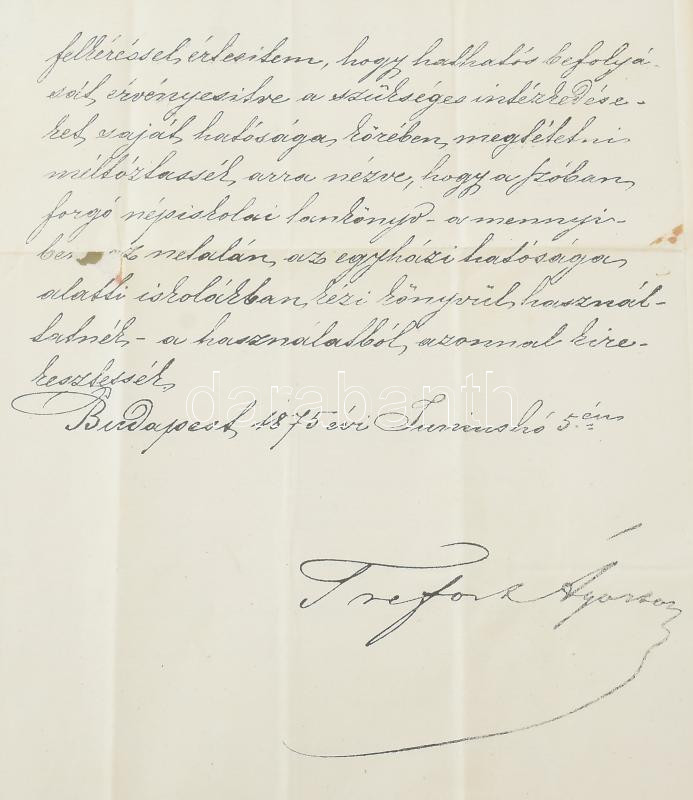 felkéréssel értesitem, hogy hathatós befolyá-
sát érvényesitve a szükséges intézkedése-
ket saját hatósága körében megtétetni
méltóztassék arra nézve, hogy a szóban
forgó népiskolai tankönyv - a mennyi-
be netalán az egyházi hatósága
alatti iskolákban kézi könyvül használ-
tatnék - a használatból azonnal kire-
kesztessék.
Budapest, 1875 évi Juniushó 5-én
darabanth
Trefort Ágoston